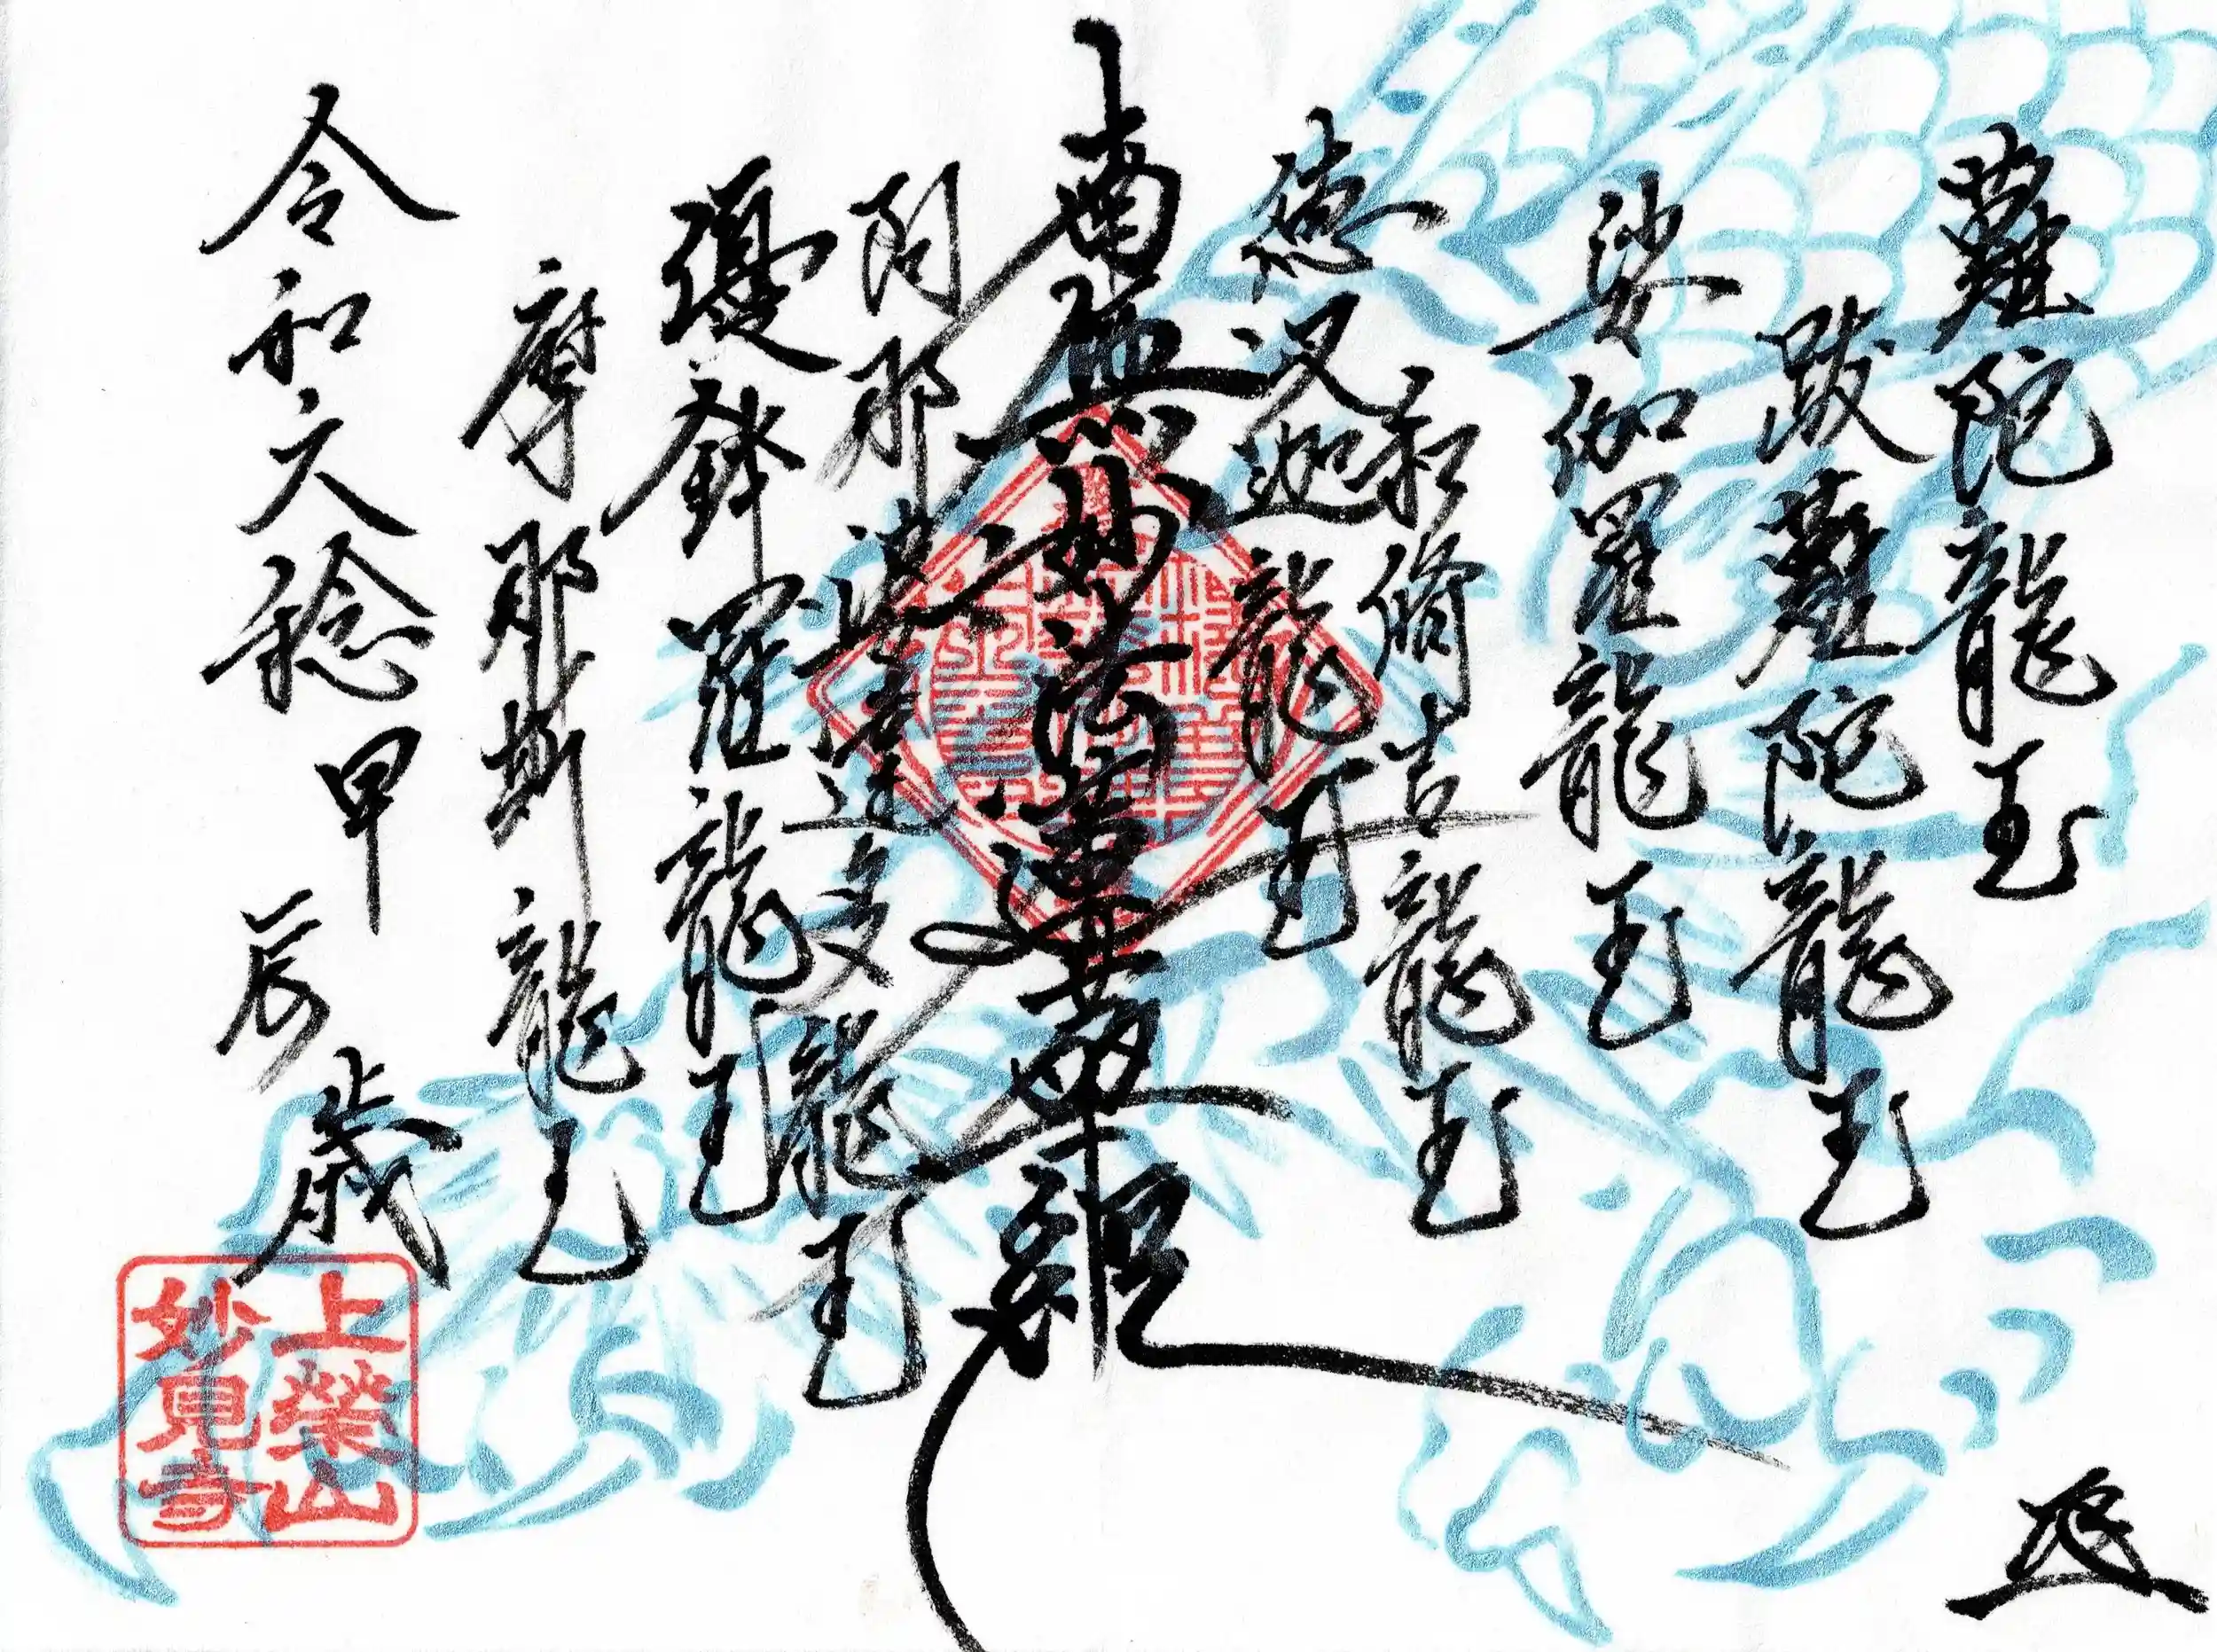 難陀龍王
跋難陀龍王
娑伽羅龍王
和脩吉龍王
徳叉迦龍王
南無妙法蓮華経
阿那婆達多龍王
優鉢羅龍王
摩那斯龍王
令和六稔甲辰歳
上榮山
妙見寺